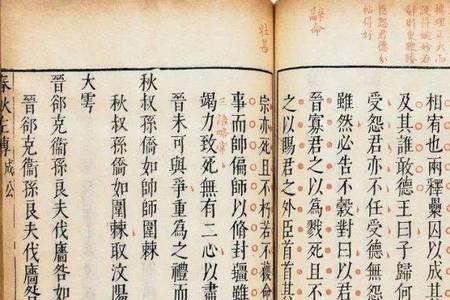 辭命
相宥也兩釋纍囚以成其
及其誰敢德王曰子歸何
受怨君亦不任受德無怨
雖然必告不穀對曰以君
晉寡君之以為戮死且不
之以賜君之外臣首首其
壯甚
宗亦死且不朽若不獲命
事而帥偏師以脩封疆雖
竭力致死無有二心以盡
晉未可與爭重為之禮而
秋叔孫僑如帥師圍棘
秋叔孫僑如圍棘取汶陽
大雩
晉郤克衞孫良夫伐廧咎如
晉郤克衞孫良夫伐廧咎如
春秋左傳 成公